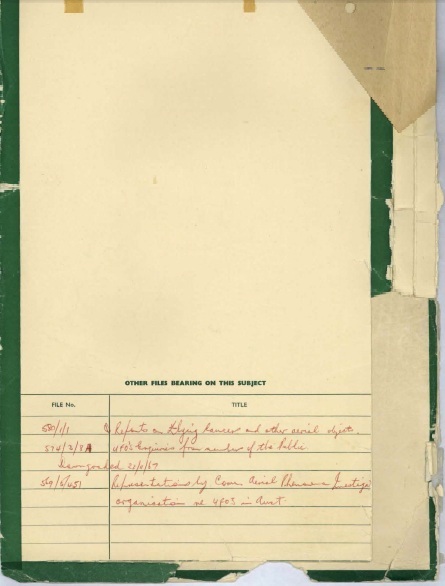 OTHER FILES BEARING ON THIS SUBJECT
FILE No. TITLE
580/1/1 Reports on Flying Saucers and other aerial objects.
574/3/88A UFO's Enquiries from members of the Public
Downgraded 21/6/67
Representations by Comm. Aerial Phenomena Investign
organisation re UFOS in Aust.